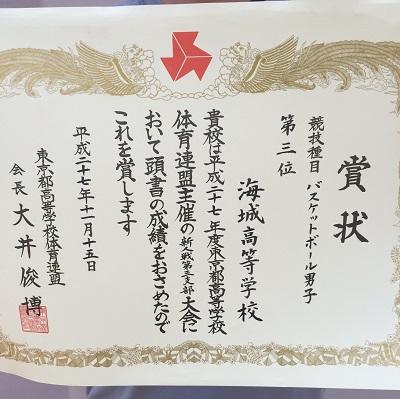 賞状
競技種目 バスケットボール男子
第三位
海城高等学校
貴校は平成二十七年度東京都高等学校
体育連盟主催の新人戦第三支部大会に
おいて頭書の成績をおさめたので
これを賞します
平成二十七年十一月十五日
東京都高等学校体育連盟
会長 大井俊博